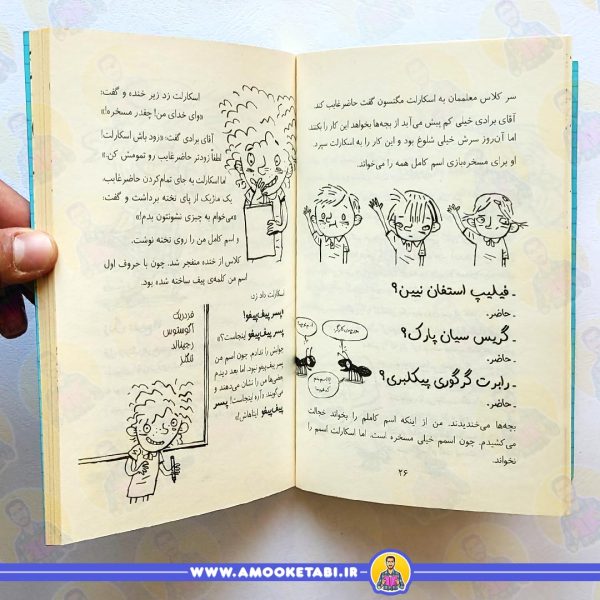 سر کلاس معلممان به اسکارلت مگنسون گفت حاضرغایب کند.
آقای برادی خیلی کم پیش می‌آید از بچه‌ها بخواهد این کار را بکنند
اما آن‌روز سرش خیلی شلوغ بود و این کار را به اسکارلت سپرد.
او برای مسخره‌بازی اسم کامل همه را می‌خواند.
ـ فیلیپ استفان نیین؟
ـ حاضر.
ـ گریس سیان پارک؟
ـ حاضر.
ـ رابرت گرگوری پیکلبری؟
ـ حاضر.
بچه‌ها می‌خندیدند. من از اینکه اسم کاملم را بخواند خجالت
می‌کشیدم. چون اسمم خیلی مسخره است. اما اسکارلت اسمم را
نخواند.
۲۶
اسکارلت زد زیر خنده و گفت:
«وای خدای من! چقدر مسخره!»
آقای برادی گفت: «زود باش اسکارلت!
لطفاً زودتر حاضرغایب رو تمومش کن.»
اما اسکارلت به جای تمام‌کردن حاضرغایب،
یک ماژیک از پای تخته برداشت و گفت:
«می‌خوام یه چیزی نشونتون بدم!»
و اسم کامل من را روی تخته نوشت.
کلاس از خنده منفجر شد. چون با حروف اول
اسم من کلمه‌ی پیف ساخته شده بود.
اسکارلت داد زد:
«پسر پیف‌پیفو!
پسر پیف‌پیفو اینجاست؟»
جوابش را ندادم. چون اسم من
پسر پیف‌پیفو نبود. اما بعد دیدم
بعضی‌ها من را نشان می‌دهند و
می‌گویند: «آره اینجاست! پسر
پیف‌پیفو ایناهاش!»
فردریک
آگوستوس
رجینالد
WWW.AMOOKETABI.IR